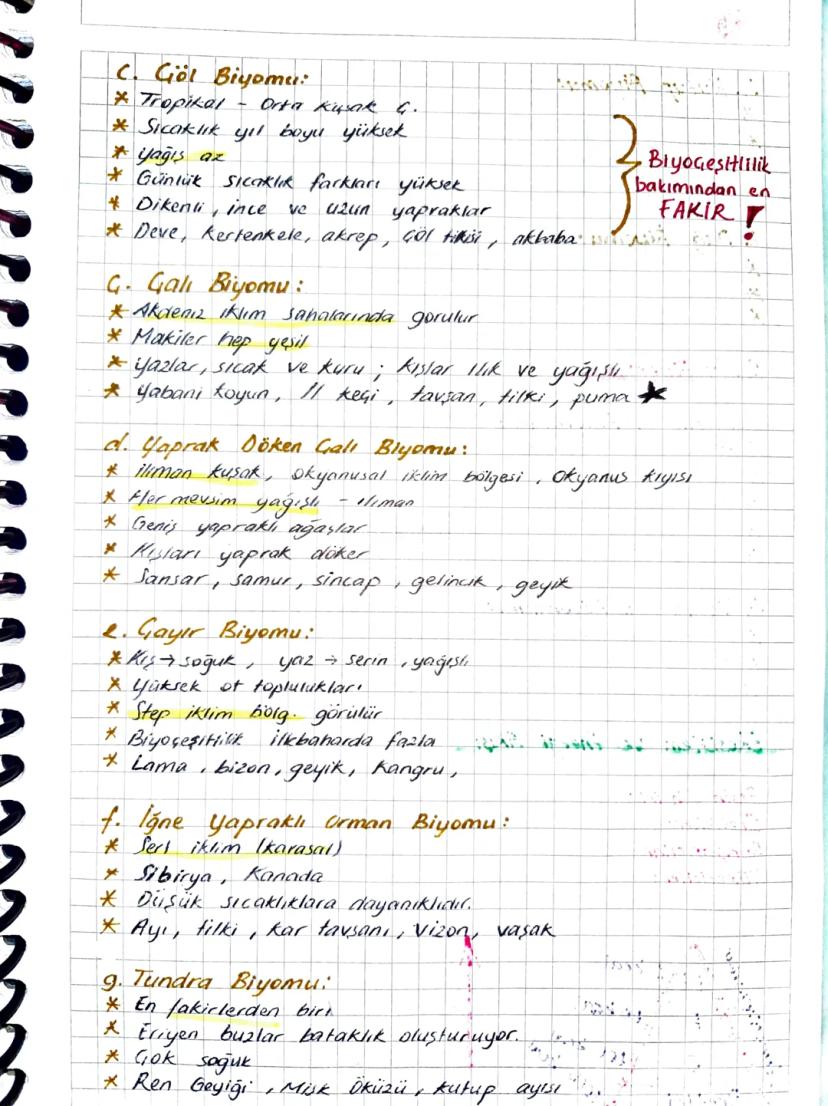 c. Göl Biyomu:
* Tropikal - Orta kuşak Ç.
* Sıcaklık yıl boyu yüksek
* Yağış az
* Günlük sıcaklık farkları yüksek
* Dikenli, ince ve uzun yapraklar
* Deve, kertenkele, akrep, çöl tilkisi, akbaba
Biyoçeşitlilik
bakımından en
FAKİR !
Ç. Çalı Biyomu:
* Akdeniz iklim sahalarında görülür
* Makiler hep yeşil
* Yazlar, sıcak ve kuru; kışlar ılık ve yağışlı
* Yabani koyun, // keçi, tavşan, tilki, puma ★
d. Yaprak Döken Çalı Biyomu:
* ılıman kuşak, okyanusal iklim bölgesi, Okyanus kıyısı
* Her mevsim yağışlı - ılıman
* Geniş yapraklı ağaçlar
* Kışları yaprak döker
* Sansar, samur, sincap, gelincik, geyik
e. Çayır Biyomu:
* Kış → soğuk, yaz → serin, yağışlı
* Yüksek ot toplulukları
* Step iklim bölg. görülür
* Biyoçeşitlilik ilkbaharda fazla
* Lama, bizon, geyik, Kangru,
f. İğne Yapraklı Orman Biyomu:
* Sert iklim (karasal)
* Sibirya, Kanada
* Düşük sıcaklıklara dayanıklıdır.
* Ayı, tilki, kar tavşanı, vizon, vaşak
g. Tundra Biyomu:
* En fakirlerden biri
* Eriyen buzlar bataklık oluşturuyor.
* Çok soğuk
* Ren Geyiği, Misk Öküzü, kutup ayısı